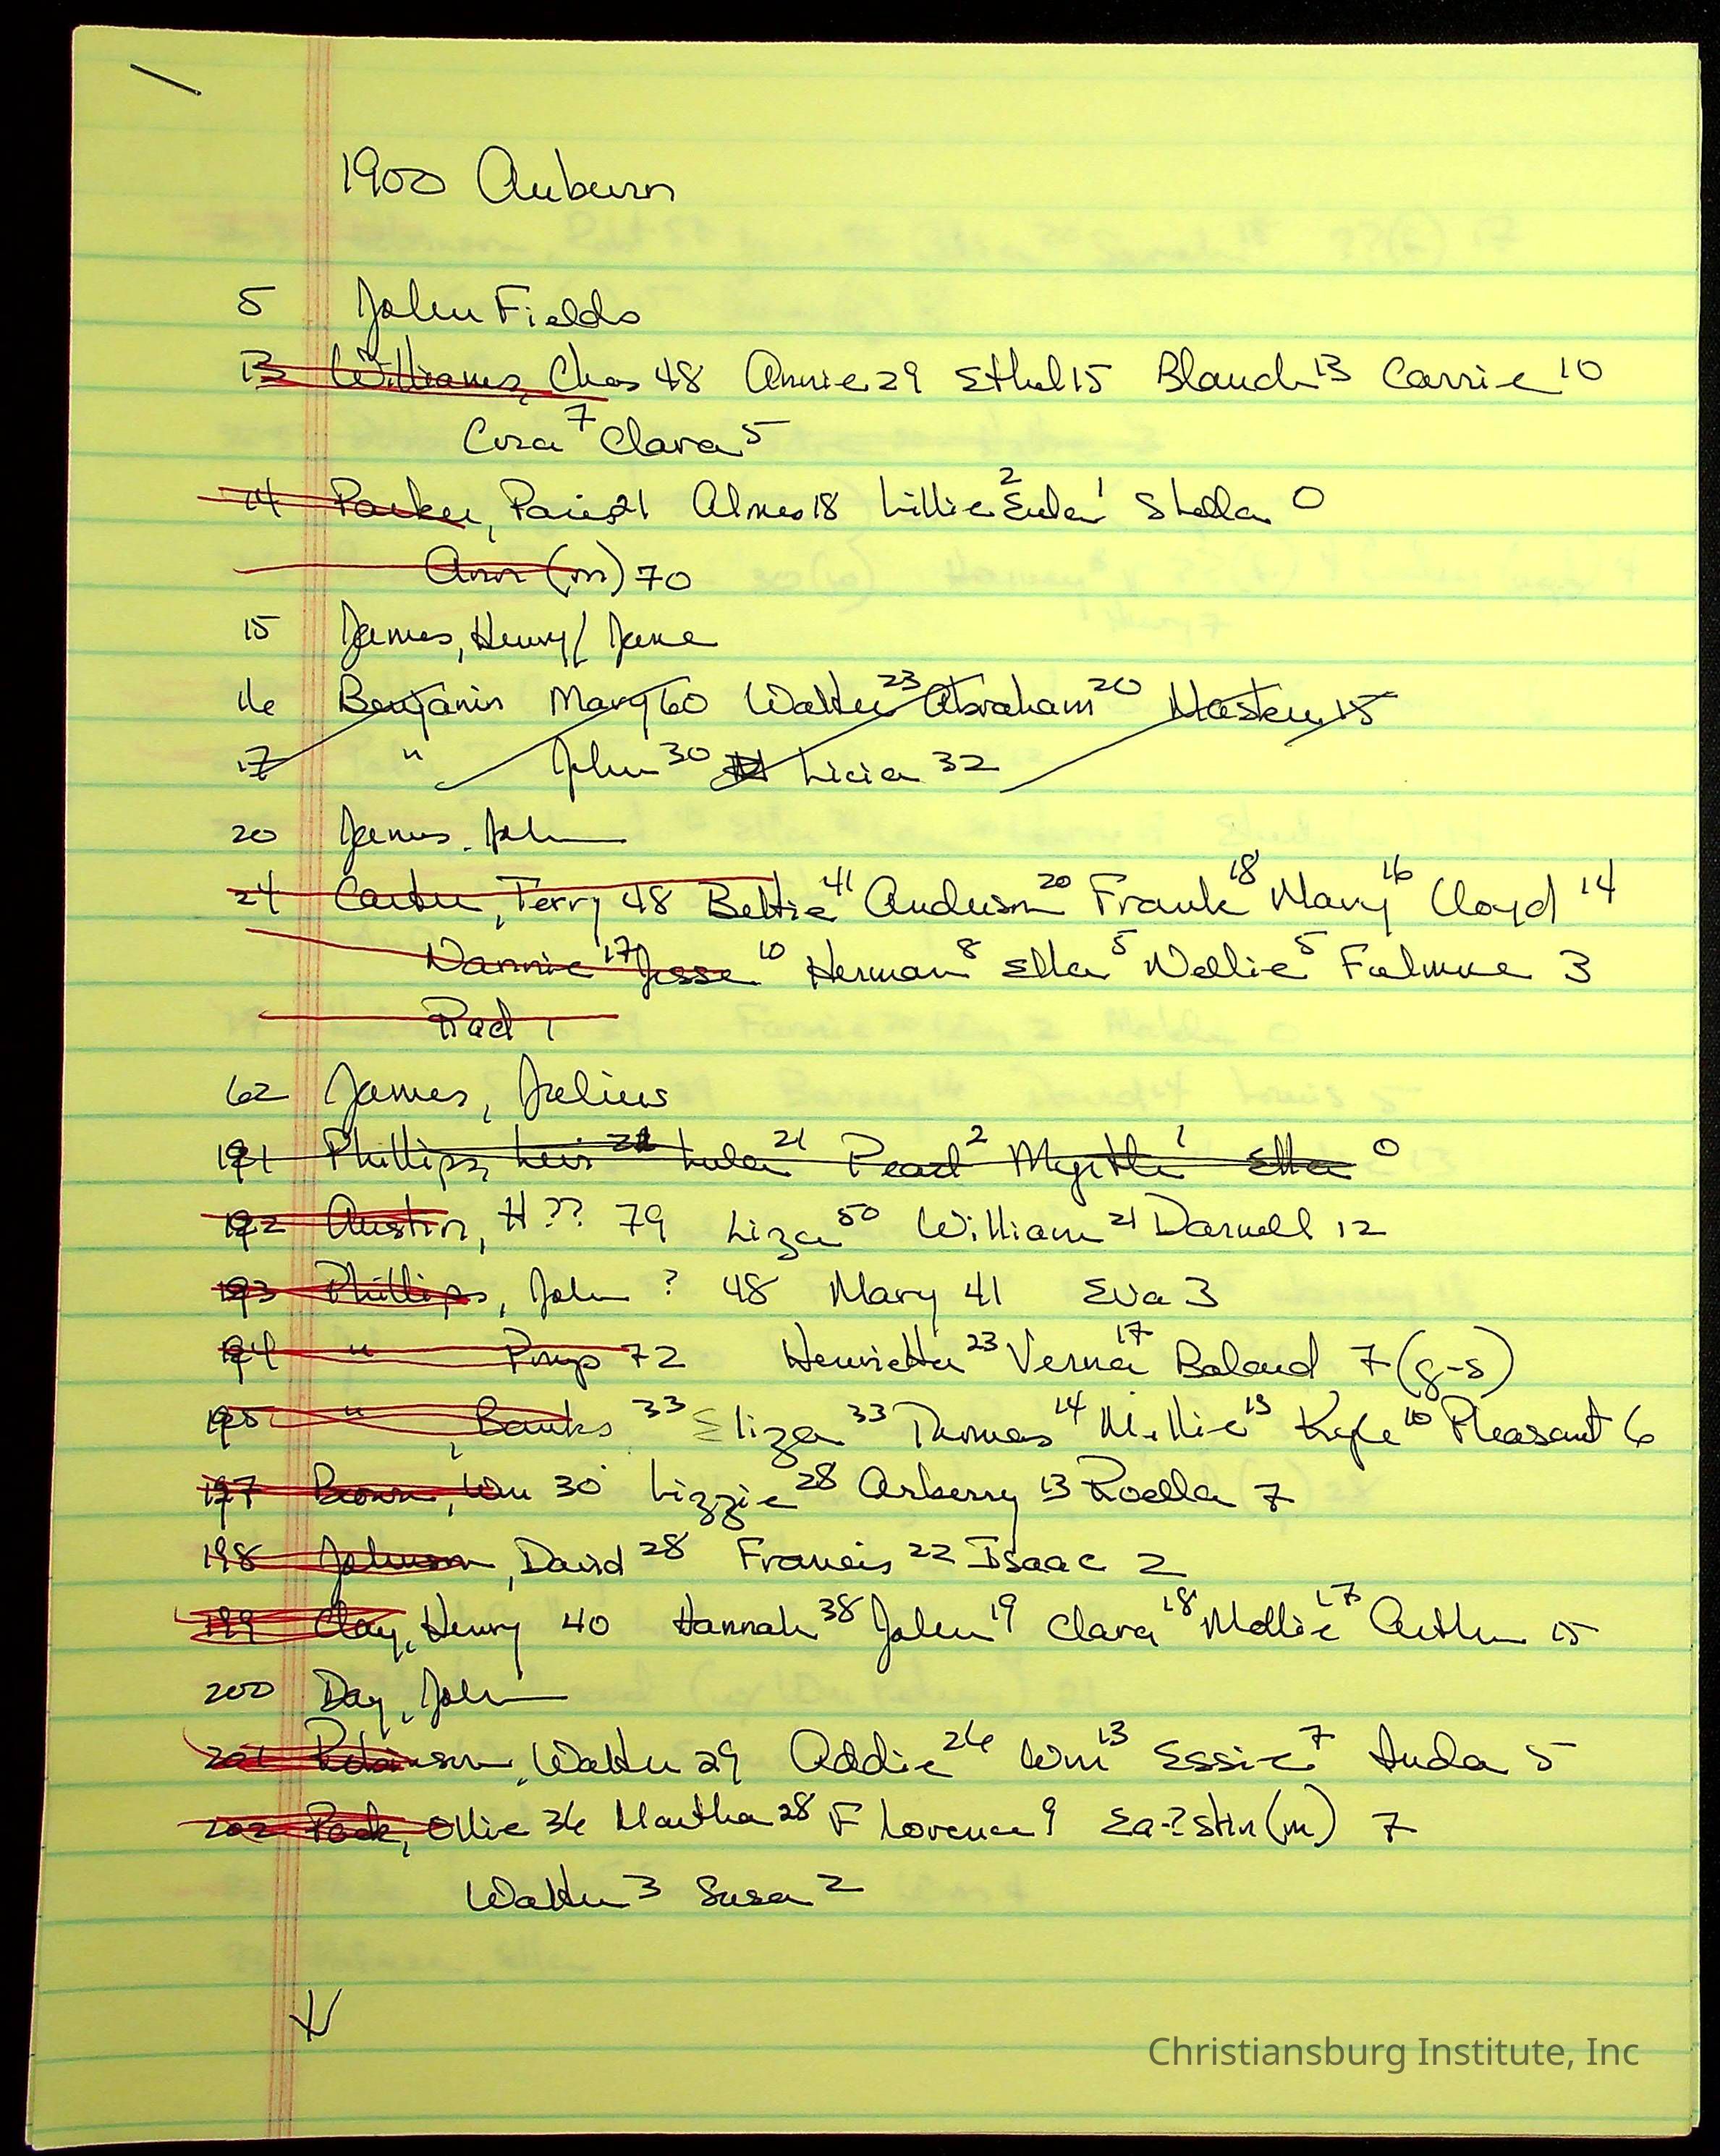 1900 Auburn
5 John Fields
13 Williams, Chas 48 Annie 29 Ethel 15 Blanch 13 Carrie 10
Cora 7 Clara 5
14 Parker, Paris 21 18 Lillie 2 Eula 1 Stella 0
Ann (m) 70
15 James, Henry / Jane
16 Benjamin Mary 60 Walter 23 Abraham 20 15
17 " John 30 Licia 32
20 James. John
24 Carter, Terry 48 Bettie 41 Anderson 20 Frank 18 Mary 16 Cloyd 14
Nannie 17 Jesse 10 Herman 8 Ella 5 Nellie 5 3
Rad 1
62 James, Julius
191 Phillips, 21 Pearl 2 Myrtle 1 Etta 0
192 Austin, H?? 79 Liza 50 William 21 Darnell 12
193 Phillips, John ? 48 Mary 41 Eva 3
194 " Pomp 72 Henrietta 23 Verna 17 Boland 7 (g-s)
195 " , Banks 33 Eliza 33 Thomas 14 Millie 13 Kyle 10 Pleasant 6
197 Brown, Wm 30 Lizzie 28 Arberry 13 Roella 7
198 Johnson, David 28 Francis 22 Isaac 2
199 Clay, Henry 40 Hannah 38 John 19 Clara 18 Mollie 17 Arthur 15
200 Day, John
201 Robinson, Walter 29 Addie 26 Wm 13 Essie 7 5
202 Pack, Ollie 36 Martha 28 Florence 9 Ea-?stin (m) 7
Walter 3 Susa 2
Christiansburg Institute, Inc